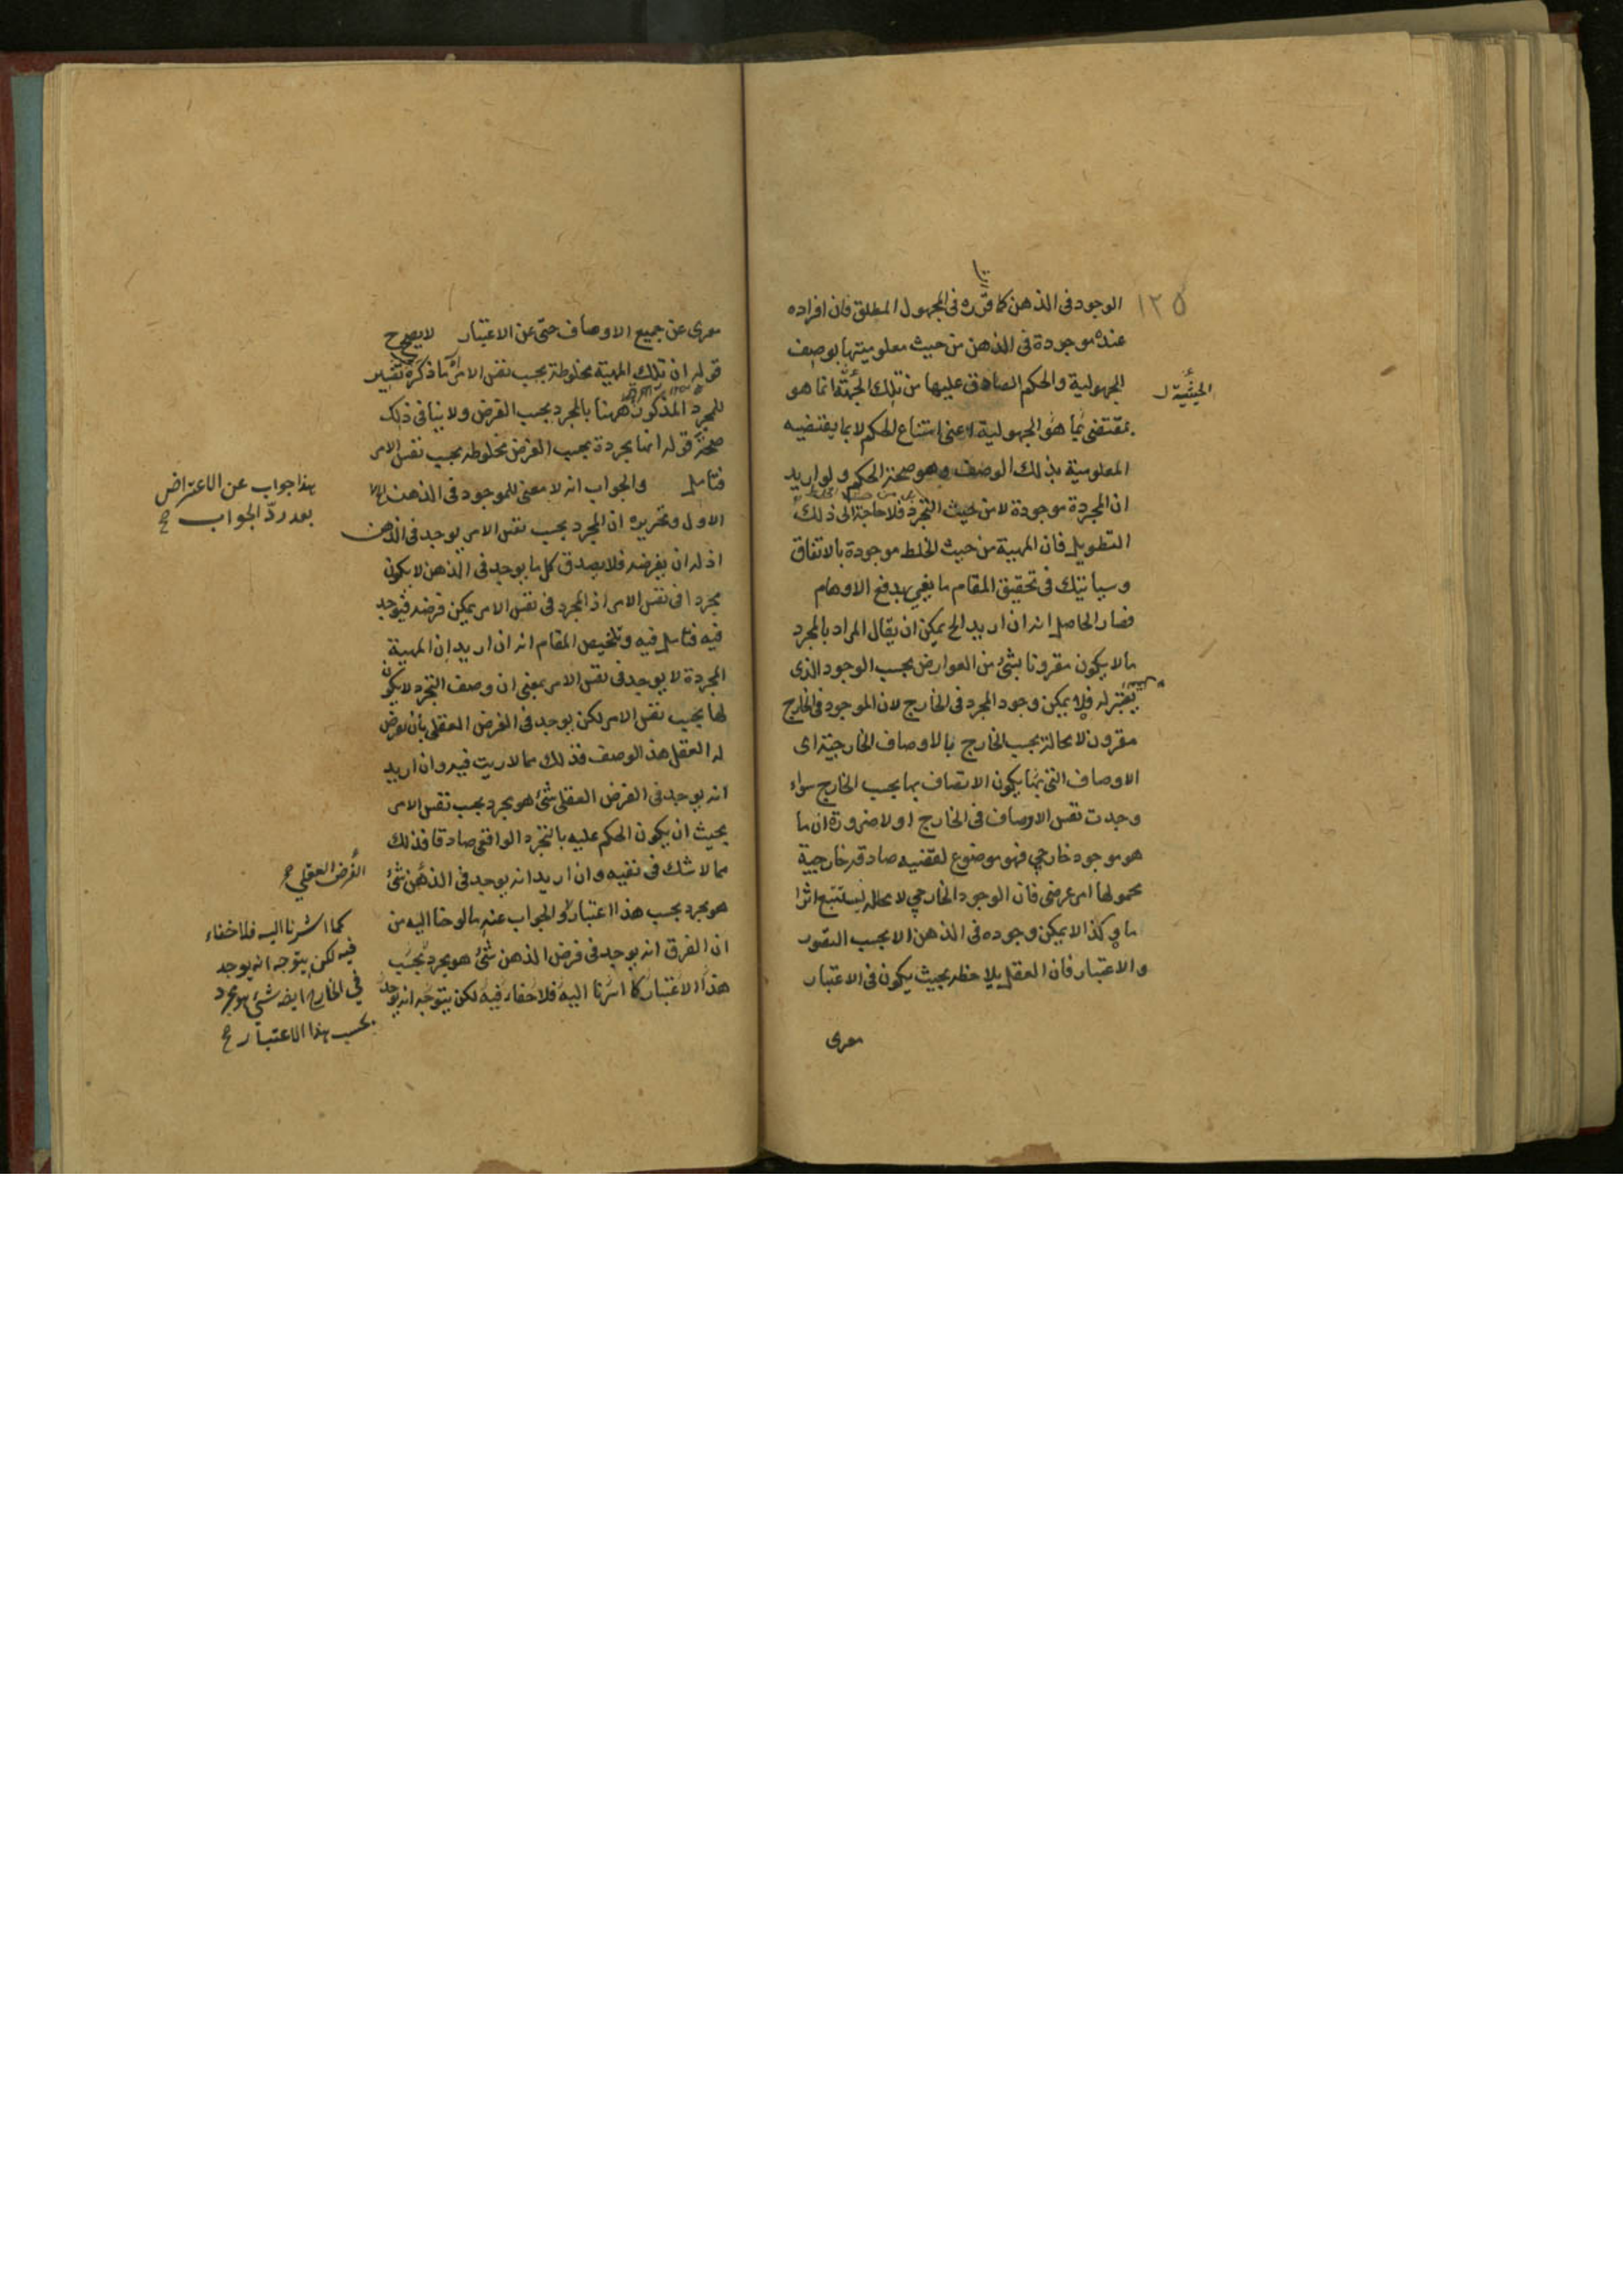 ١٢٥
الوجود فى الذهن كما قرره فى المجهول المطلق فان افراده
عنده موجودة فى الذهن من حيث معلوميتها بوصف
المجهولية والحكم الصادق عليها من تلك الجهة انما هو
الحيثية ل
بمقتضى ما هو المجهولية اعنى امتناع الحكم لا بما يقتضيه
المعلومية بذلك الوصف وهو صحة الحكم ولو اريد
ان المجردة موجودة لا من حيث التجرد فلا حاجة الى ذلك
التطويل فان المهية من حيث الخلط موجودة بالاتفاق
وسيأتيك فى تحقيق المقام ما يفى بدفع الاوهام
فصار الحاصل انه ان اريد الخ يمكن ان يقال المراد بالمجرد
ما لا يكون مقرونا بشئ من العوارض بحسب الوجود الذى
يعتبر له فلا يمكن وجود المجرد فى الخارج لان الموجود فى الخارج
مقرون لا محالة بحسب الخارج بالاوصاف الخارجية اى
الاوصاف التى يكون الاتصاف بها بحسب الخارج سواء
وجدت نفس الاوصاف فى الخارج او لا ضرورة ان ما
هو موجود خارجي فهو موضوع لقضيه صادقه خارجيية
محمولها امر عرضى فان الوجود الخارجي لا محاله يستتبع اثرا
ما وكذا لا يمكن وجوده فى الذهن الا بحسب التصور
والاعتبار فان العقل يلاحظه بحيث يكون فى الاعتبار
معرى
معرى عن جميع الاوصاف حتى عن الاعتبار لا يصح
قوله ان تلك المهية مخلوطة بحسب نفس الامر ما ذكره تفسير
للمجرد المذكور ههنا بالمجرد بحسب الفرض ولا ينافى ذلك
صحة قوله انها مجردة بحسب الفرض مخلوطه بحسب نفس الامر
فتامل والجواب انه لا معنى للموجود فى الذهن الا
هذا جواب عن الاعتراض
بعد ردّ الجواب
الاول وتحريره ان المجرد بحسب نفس الامر يوجد فى الذهن
اذ له ان يفرضه فلا يصدق كل ما يوجد فى الذهن لا يكون
مجردا فى نفس الامر اذ المجرد فى نفس الامر يمكن فرضه فيوجد
فيه فتامل فيه وتلخيص المقام انه ان اريد ان المهية
المجردة لا يوجد فى نفس الامر بمعنى ان وصف التجرد لا يكون
لها بحسب نفس الامر لكن يوجد فى الفرض العقلى بان يفرض
له العقل هذا الوصف فذلك مما لا ريب فيه وان اريد
انه يوجد فى الفرض العقلى شئ هو مجرد بحسب نفس الامر
بحيث ان يكون الحكم عليه بالتجرد الواقعى صادقا فذلك
مما لا شك فى نفيه وان اريد انه يوجد فى الذهن شئ
الفرض العقلي
هو مجرد بحسب هذا الاعتبار والجواب عنه ما لوحنا اليه من
ان الفرق انه يوجد فى فرض الذهن شئ هو مجرد بحسب
هذا الاعتبار كما اشرنا اليه فلا خفاء فيه لكن يتوجه انه يوجد
كما اشرنا اليه فلا خفاء
فيه لكن يتوجه انه يوجد
في الخارج ايضه شئ هو مجرد
بحسب هذا الاعتبار